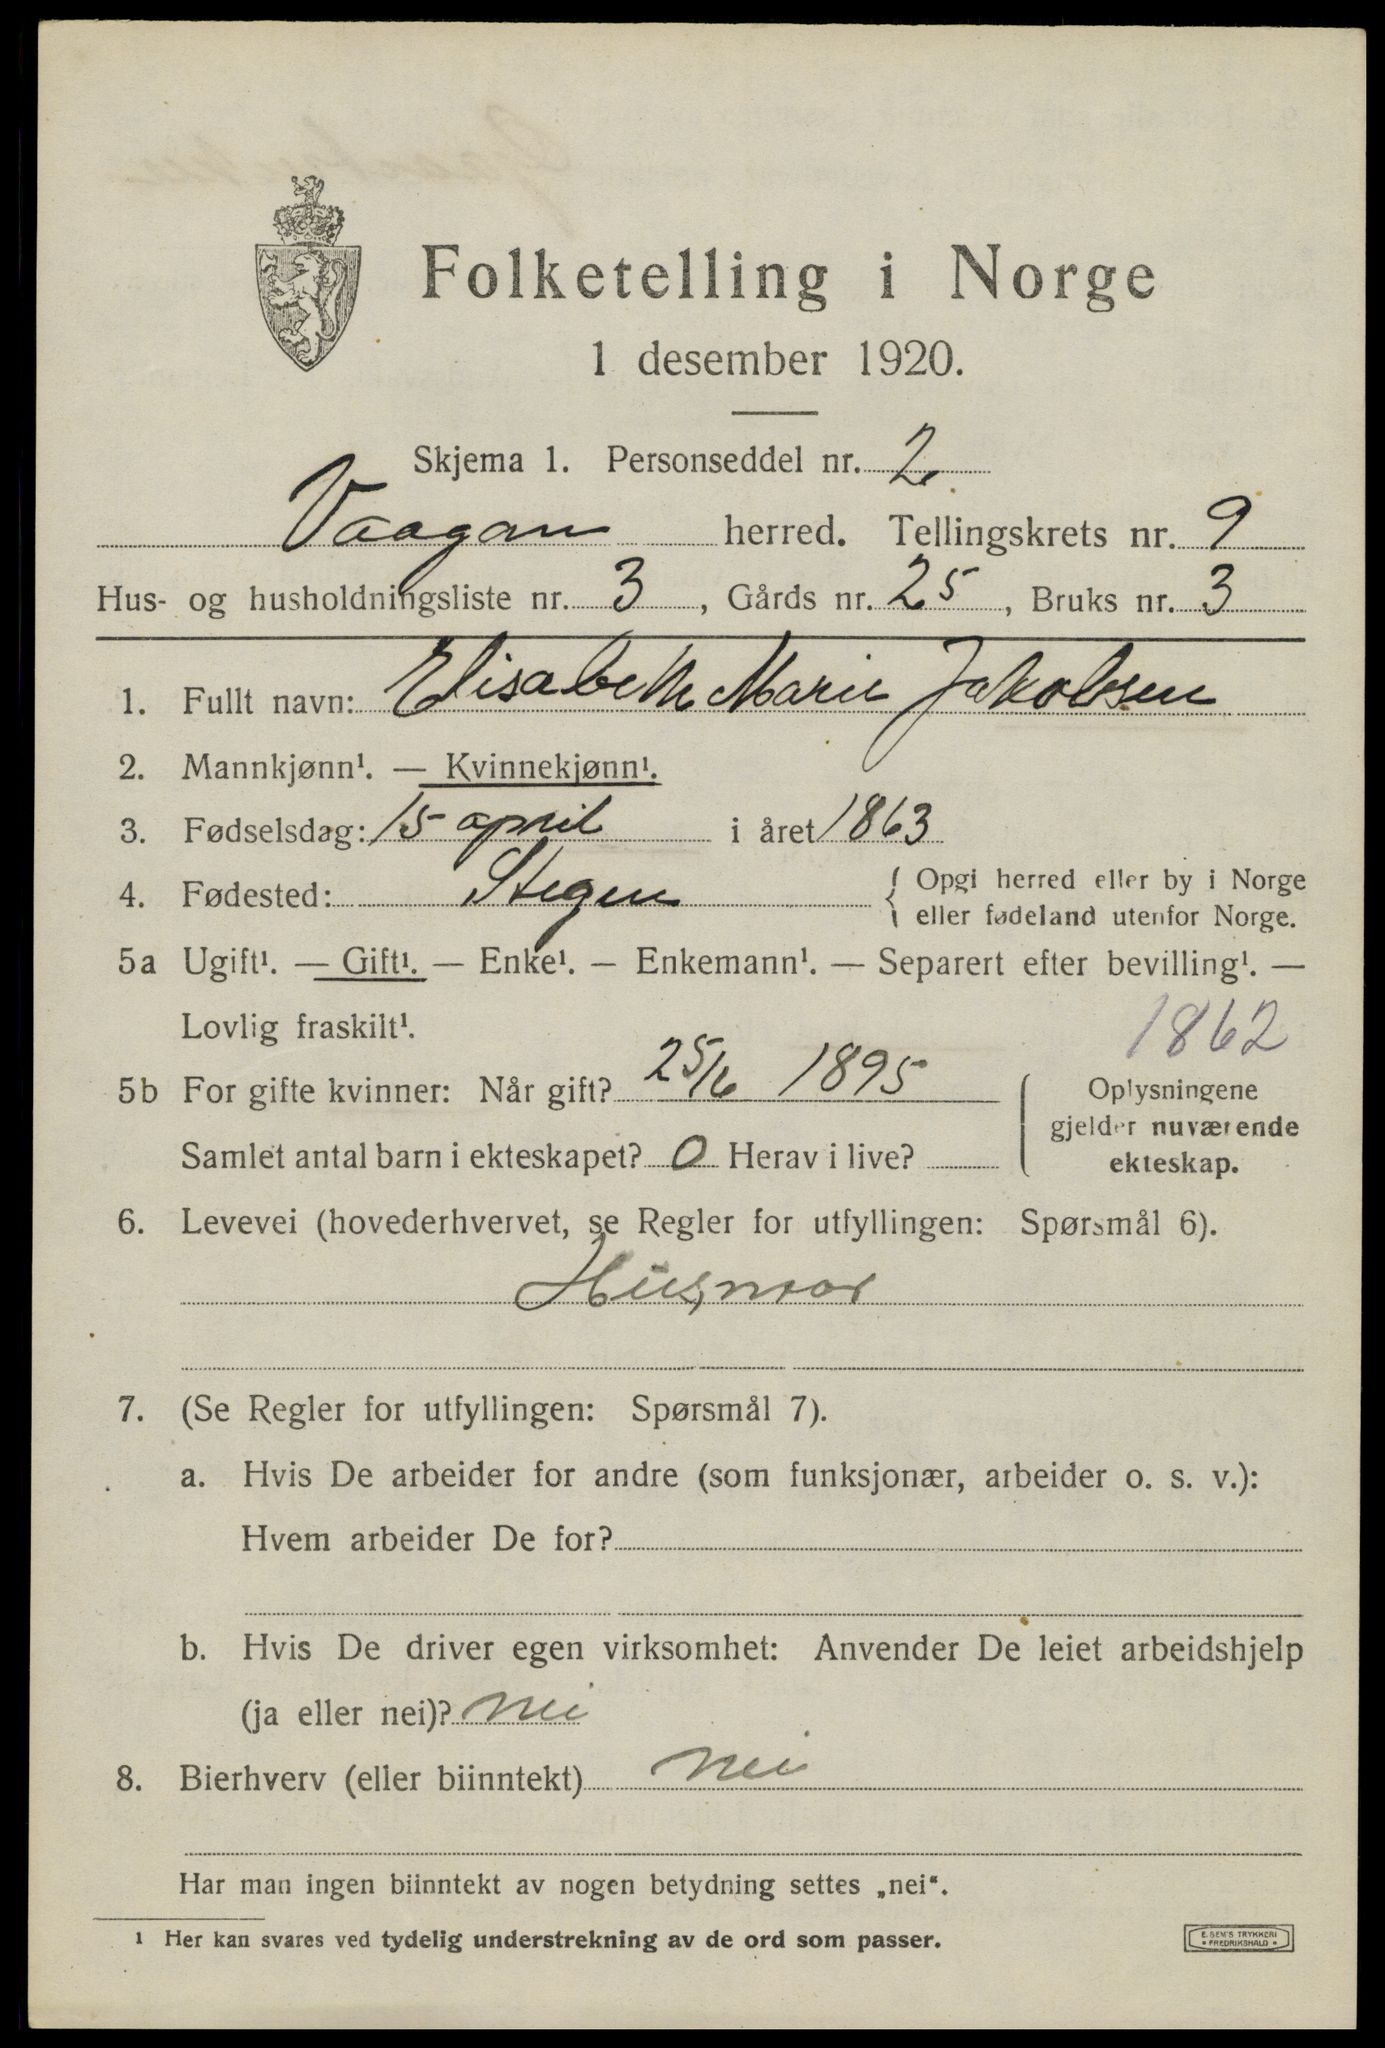 Folketelling i Norge
1 desember 1920.
Skjema 1. Personseddel nr. 2
Vaagan herred. Tellingskrets nr. 9
Hus- og husholdningsliste nr. 3, Gårds nr. 25, Bruks nr. 3
1. Fullt navn: Elisabeth Marie Jakobsen
2. Mannkjønn¹. — Kvinnekjønn¹.
3. Fødselsdag: 15 april i året 1863
4. Fødested: Stegen { Opgi herred eller by i Norge
eller fødeland utenfor Norge.
5a Ugift¹. — Gift¹. — Enke¹. — Enkemann¹. — Separert efter bevilling¹. —
Lovlig fraskilt¹.
1862
5b For gifte kvinner: Når gift? 25/6 1895
Samlet antal barn i ekteskapet? 0 Herav i live?
Oplysningene
gjelder nuværende
ekteskap.
6. Levevei (hovederhvervet, se Regler for utfyllingen: Spørsmål 6).
Husmor
7. (Se Regler for utfyllingen: Spørsmål 7).
a. Hvis De arbeider for andre (som funksjonær, arbeider o. s. v.):
Hvem arbeider De for?
b. Hvis De driver egen virksomhet: Anvender De leiet arbeidshjelp
(ja eller nei)? nei
8. Bierhverv (eller biinntekt) nei
Har man ingen biinntekt av nogen betydning settes „nei“.
¹ Her kan svares ved tydelig understrekning av de ord som passer.
E. SEM'S TRYKKERI
• FREDRIKSHALD •